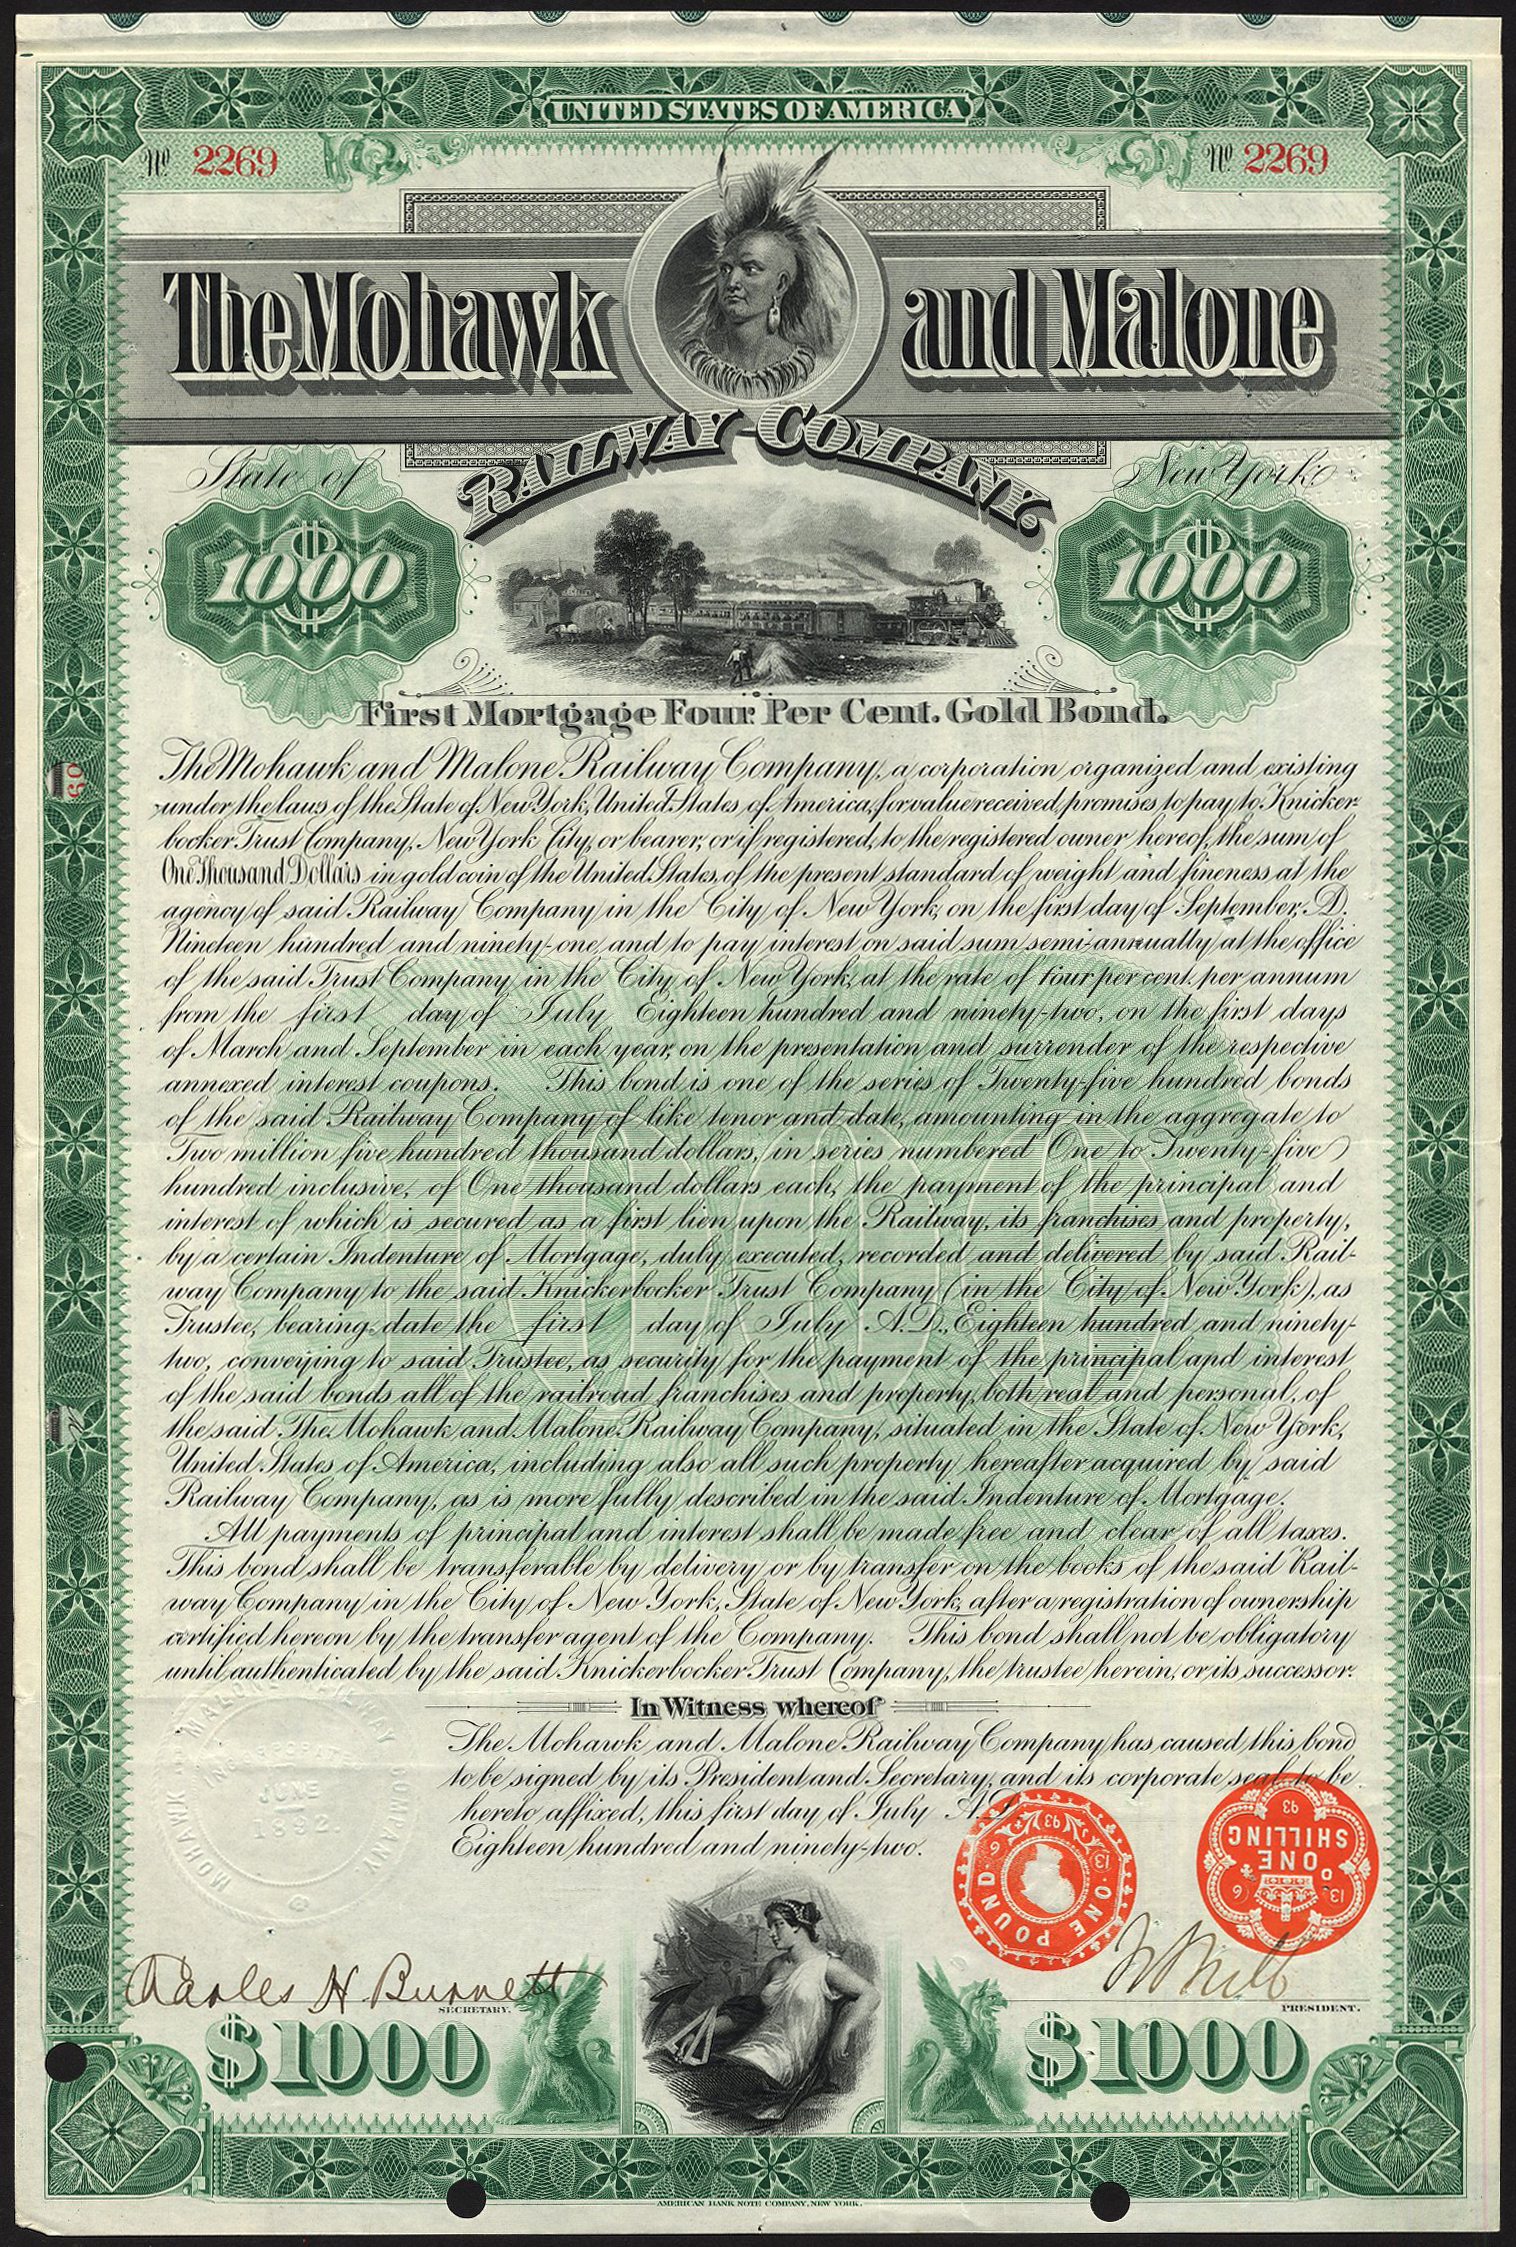 UNITED STATES OF AMERICA
No 2269
No 2269
The Mohawk and Malone
RAILWAY COMPANY.
State of
New York
$1000
$1000
First Mortgage Four Per Cent. Gold Bond.
The Mohawk and Malone Railway Company, a corporation organized and existing
under the laws of the State of New York, United States of America, for value received, promises to pay to Knicker-
bocker Trust Company, New York City, or bearer, or if registered, to the registered owner hereof, the sum of
One Thousand Dollars in gold coin of the United States, of the present standard of weight and fineness at the
agency of said Railway Company in the City of New York, on the first day of September, A.D.
Nineteen hundred and ninety-one, and to pay interest on said sum semi-annually at the office
of the said Trust Company, in the City of New York, at the rate of four per cent. per annum
from the first day of July Eighteen hundred and ninety-two, on the first days
of March and September in each year, on the presentation and surrender of the respective
annexed interest coupons. This bond is one of the series of Twenty-five hundred bonds
of the said Railway Company of like tenor and date, amounting in the aggregate to
Two million five hundred thousand dollars, in series numbered One to Twenty-five
hundred inclusive, of One thousand dollars each, the payment of the principal and
interest of which is secured as a first lien upon the Railway, its franchises and property,
by a certain Indenture of Mortgage, duly executed, recorded and delivered by said Rail-
way Company to the said Knickerbocker Trust Company (in the City of New York), as
Trustee, bearing date the first day of July A.D., Eighteen hundred and ninety-
two, conveying to said Trustee, as security for the payment of the principal and interest
of the said bonds all of the railroad franchises and property, both real and personal, of
the said The Mohawk and Malone Railway Company, situated in the State of New York,
United States of America, including also all such property hereafter acquired by said
Railway Company, as is more fully described in the said Indenture of Mortgage.
All payments of principal and interest shall be made free and clear of all taxes.
This bond shall be transferable by delivery or by transfer on the books of the said Rail-
way Company in the City of New York, State of New York, after a registration of ownership
certified hereon by the transfer agent of the Company. This bond shall not be obligatory
until authenticated by the said Knickerbocker Trust Company, the trustee herein, or its successor.
In Witness whereof
The Mohawk and Malone Railway Company has caused this bond
to be signed by its President and Secretary, and its corporate seal to be
hereto affixed, this first day of July A.D.
Eighteen hundred and ninety-two.
MOHAWK AND MALONE RAILWAY COMPANY.
INCORPORATED
JUNE
ONE POUND
93
13
6
ONE
SHILLING
93
13
6
Charles H Burnett
SECRETARY.
PRESIDENT.
$1000
$1000
AMERICAN BANK NOTE COMPANY, NEW YORK.